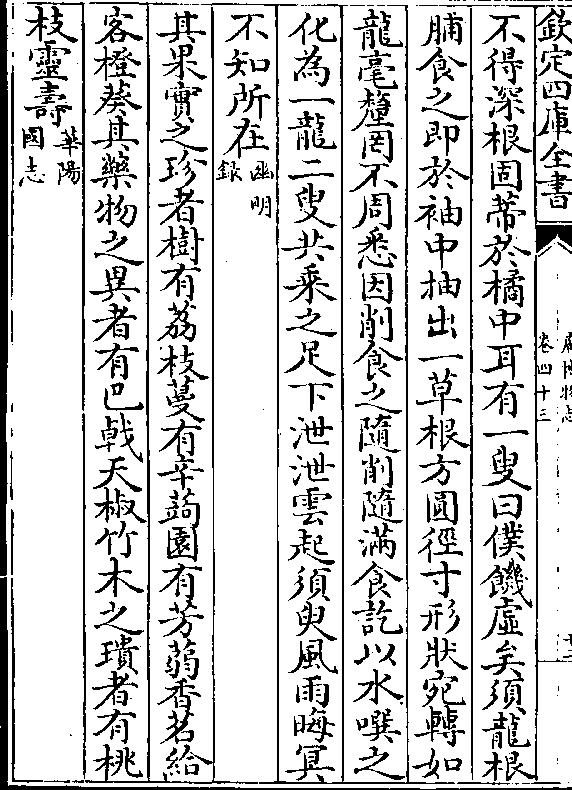 欽定四庫全書
廣博物志
卷四十三
不得深根固蒂於橘中耳有一叟曰僕饑虛矣須龍根
脯食之即於袖中抽出一草根方圓徑寸形狀宛轉如
龍毫釐罔不周悉因削食之隨削隨滿食訖以水噀之
化為一龍二叟共乘之足下泄泄雲起須臾風雨晦冥
不知所在幽明
錄
其果實之珍者樹有荔枝蔓有辛蒟園有芳蒻香茗給
客橙葵其藥物之異者有巴戟天椒竹木之璝者有桃
枝靈壽華陽
國志